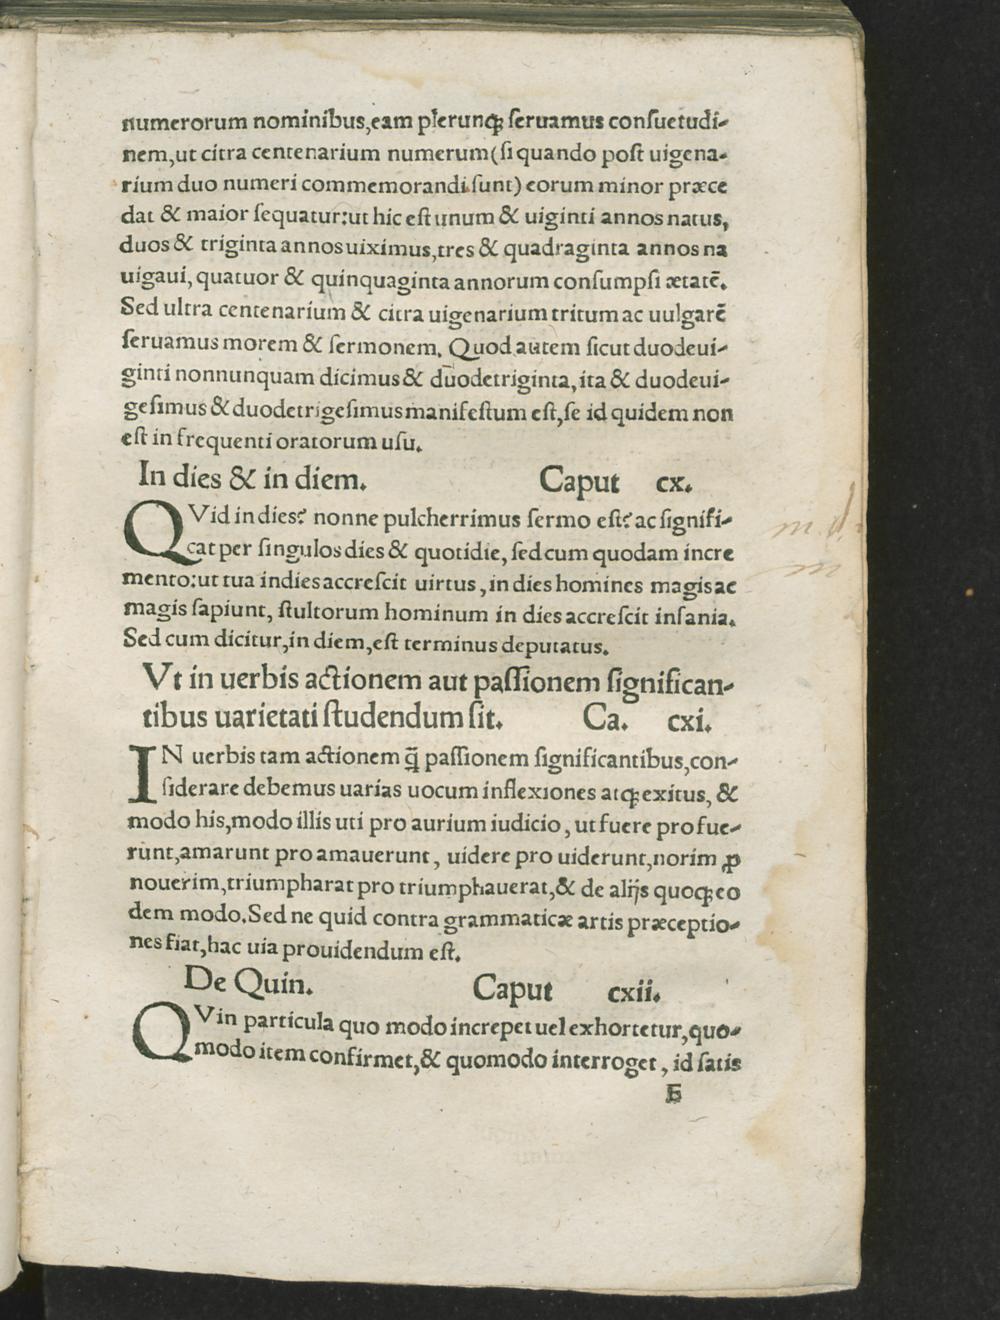 numerorum nominibus,eam plerunqꝫ ſeruamus conſuetudi-
nem,ut citra centenarium numerum(ſi quando poſt uigena-
rium duo numeri commemorandi ſunt) eorum minor præce
dat & maior ſequatur:ut hic eſt unum & uiginti annos natus,
duos & triginta annos uiximus,tres & quadraginta annos na
uigaui, quatuor & quinquaginta annorum conſumpſi ætatē.
Sed ultra centenarium & citra uigenarium tritum ac uulgarē
ſeruamus morem & ſermonem. Quod autem ſicut duodeui-
ginti nonnunquam dicimus & duodetriginta, ita & duodeui-
geſimus & duodetrigeſimus manifeſtum eſt,ſe id quidem non
eſt in frequenti oratorum uſu.
In dies & in diem. Caput cx.
QVid in dies? nonne pulcherrimus ſermo eſt? ac ſignifi-
cat per ſingulos dies & quotidie, ſed cum quodam incre
mento:ut tua indies accreſcit uirtus, in dies homines magis ac
magis ſapiunt, ſtultorum hominum in dies accreſcit inſania.
Sed cum dicitur,in diem,eſt terminus deputatus.
Vt in uerbis actionem aut paſſionem ſignifican-
tibus uarietati ſtudendum ſit. Ca. cxi.
IN uerbis tam actionem q̄ paſſionem ſignificantibus,con-
ſiderare debemus uarias uocum inflexiones atqꝫ exitus, &
modo his,modo illis uti pro aurium iudicio, ut fuere pro fue-
runt,amarunt pro amauerunt, uidere pro uiderunt,norim ꝓ
nouerim,triumpharat pro triumphauerat,& de alijs quoqꝫ eo
dem modo.Sed ne quid contra grammaticæ artis præceptio-
nes fiat,hac uia prouidendum eſt.
De Quin. Caput cxii.
QVin particula quo modo increpet uel exhortetur,quo-
modo item confirmet,& quomodo interroget, id ſatis